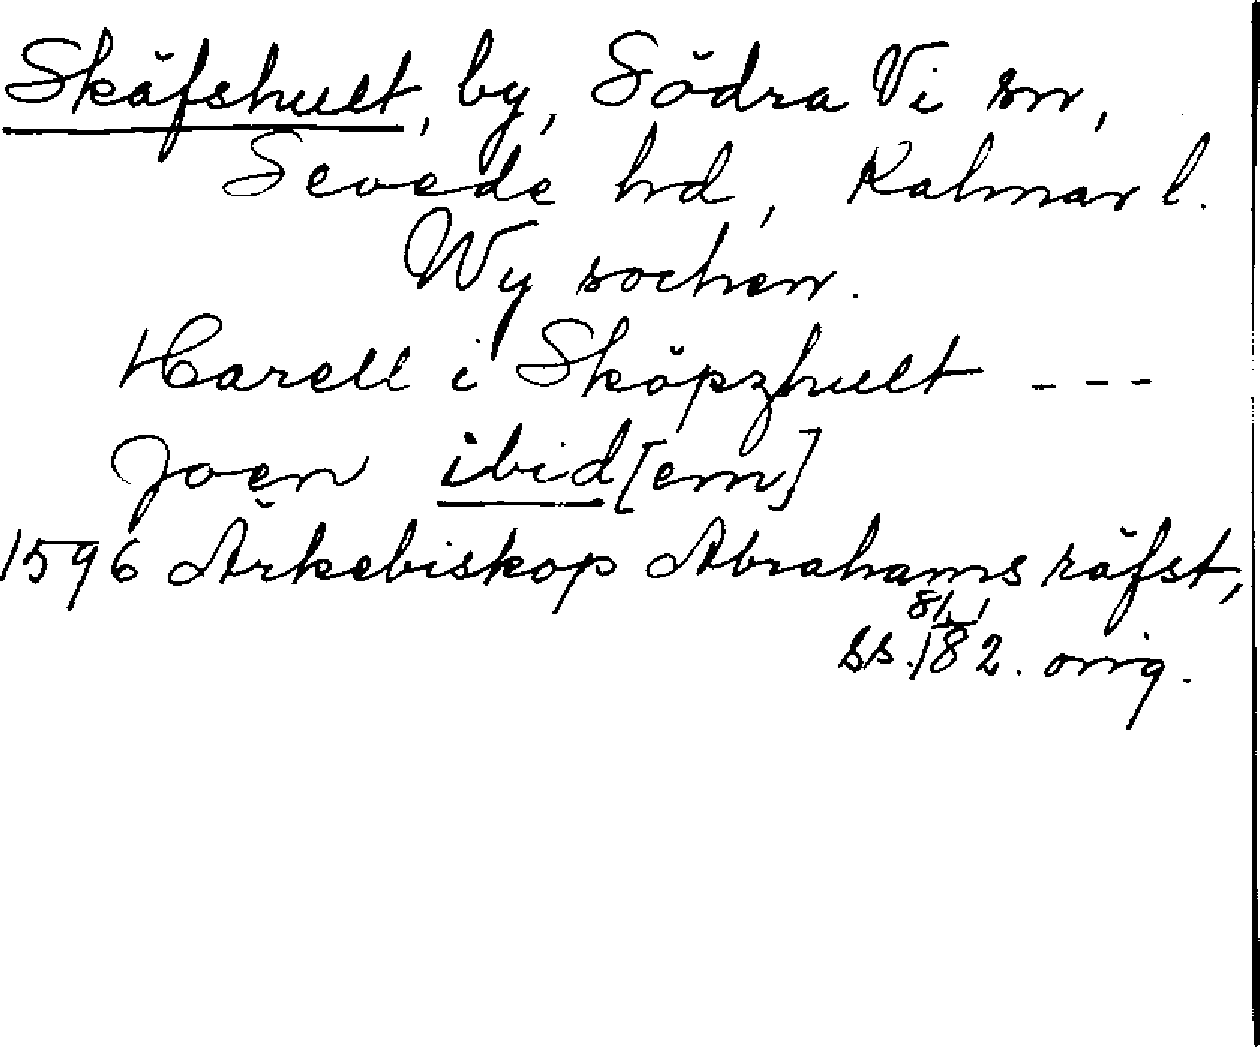 Skäfshult, by, Södra Vi sn,
Sevede hd, Kalmar l.
Wy sochen.
Harell i Sköpzhult ---
Joen ibid[em]
1596 Ärkebiskop Abrahams räfst,
ss. 182. orig.